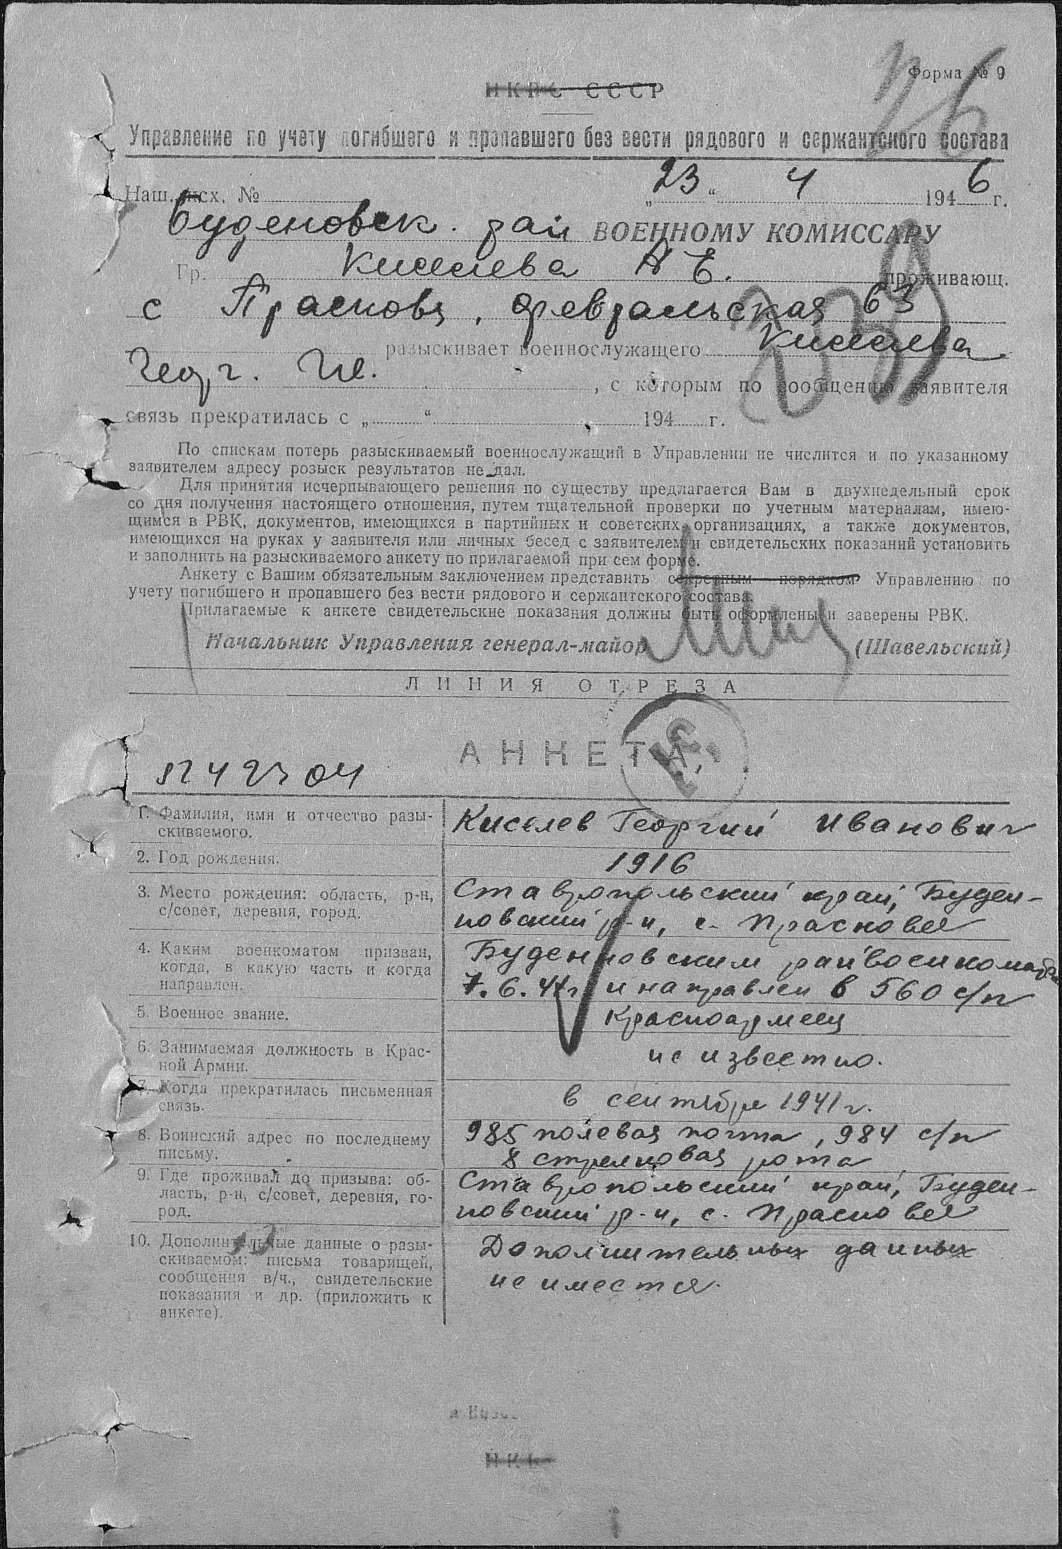 Форма № 9
26
НКВС СССР
Управление по учету погибшего и пропавшего без вести рядового и сержантского состава
Наш. исх. № „23“ 4 1946 г.
Буденовск. рай ВОЕННОМУ КОМИССАРУ
Гр. Киселева А Е. проживающ.
с Прасковя, февральская 63
разыскивает военнослужащего Киселева
Георг. Ив. , с которым по сообщению заявителя
связь прекратилась с „ “ 194 г.
По спискам потерь разыскиваемый военнослужащий в Управлении не числится и по указанному
заявителем адресу розыск результатов не дал.
Для принятия исчерпывающего решения по существу предлагается Вам в двухнедельный срок
со дня получения настоящего отношения, путем тщательной проверки по учетным материалам, имею-
щимся в РВК, документов, имеющихся в партийных и советских организациях, а также документов,
имеющихся на руках у заявителя или личных бесед с заявителем и свидетельских показаний установить
и заполнить на разыскиваемого анкету по прилагаемой при сем форме.
Анкету с Вашим обязательным заключением представить секретным порядком Управлению по
учету погибшего и пропавшего без вести рядового и сержантского состава.
Прилагаемые к анкете свидетельские показания должны быть оформлены и заверены РВК.
Начальник Управления генерал-майор (Шавельский)
ЛИНИЯ ОТРЕЗА
АНКЕТА
№42304
1. Фамилия, имя и отчество разы-
скиваемого.
Киселев Георгий Иванович
2. Год рождения.
1916
3. Место рождения: область, р-н,
с/совет, деревня, город.
Ставропольский край, Буден-
новский р-н, с. Прасковея
4. Каким военкоматом призван,
когда, в какую часть и когда
направлен.
Буденновским райвоенкоматом
7.6.41г и направлен в 560 с/п
5. Военное звание.
Красноармеец
6. Занимаемая должность в Крас-
ной Армии.
не известно.
7. Когда прекратилась письменная
связь.
в сентябре 1941 г.
8. Воинский адрес по последнему
письму.
985 полевая почта, 984 с/п
8 стрелковая рота
9. Где проживал до призыва: об-
ласть, р-н, с/совет, деревня, го-
род.
Ставропольский край, Буден-
новский р-н, с. Прасковея
10. Дополнительные данные о разы-
скиваемом: письма товарищей,
сообщения в/ч., свидетельские
показания и др. (приложить к
анкете).
Дополнительных данных
не имеется.